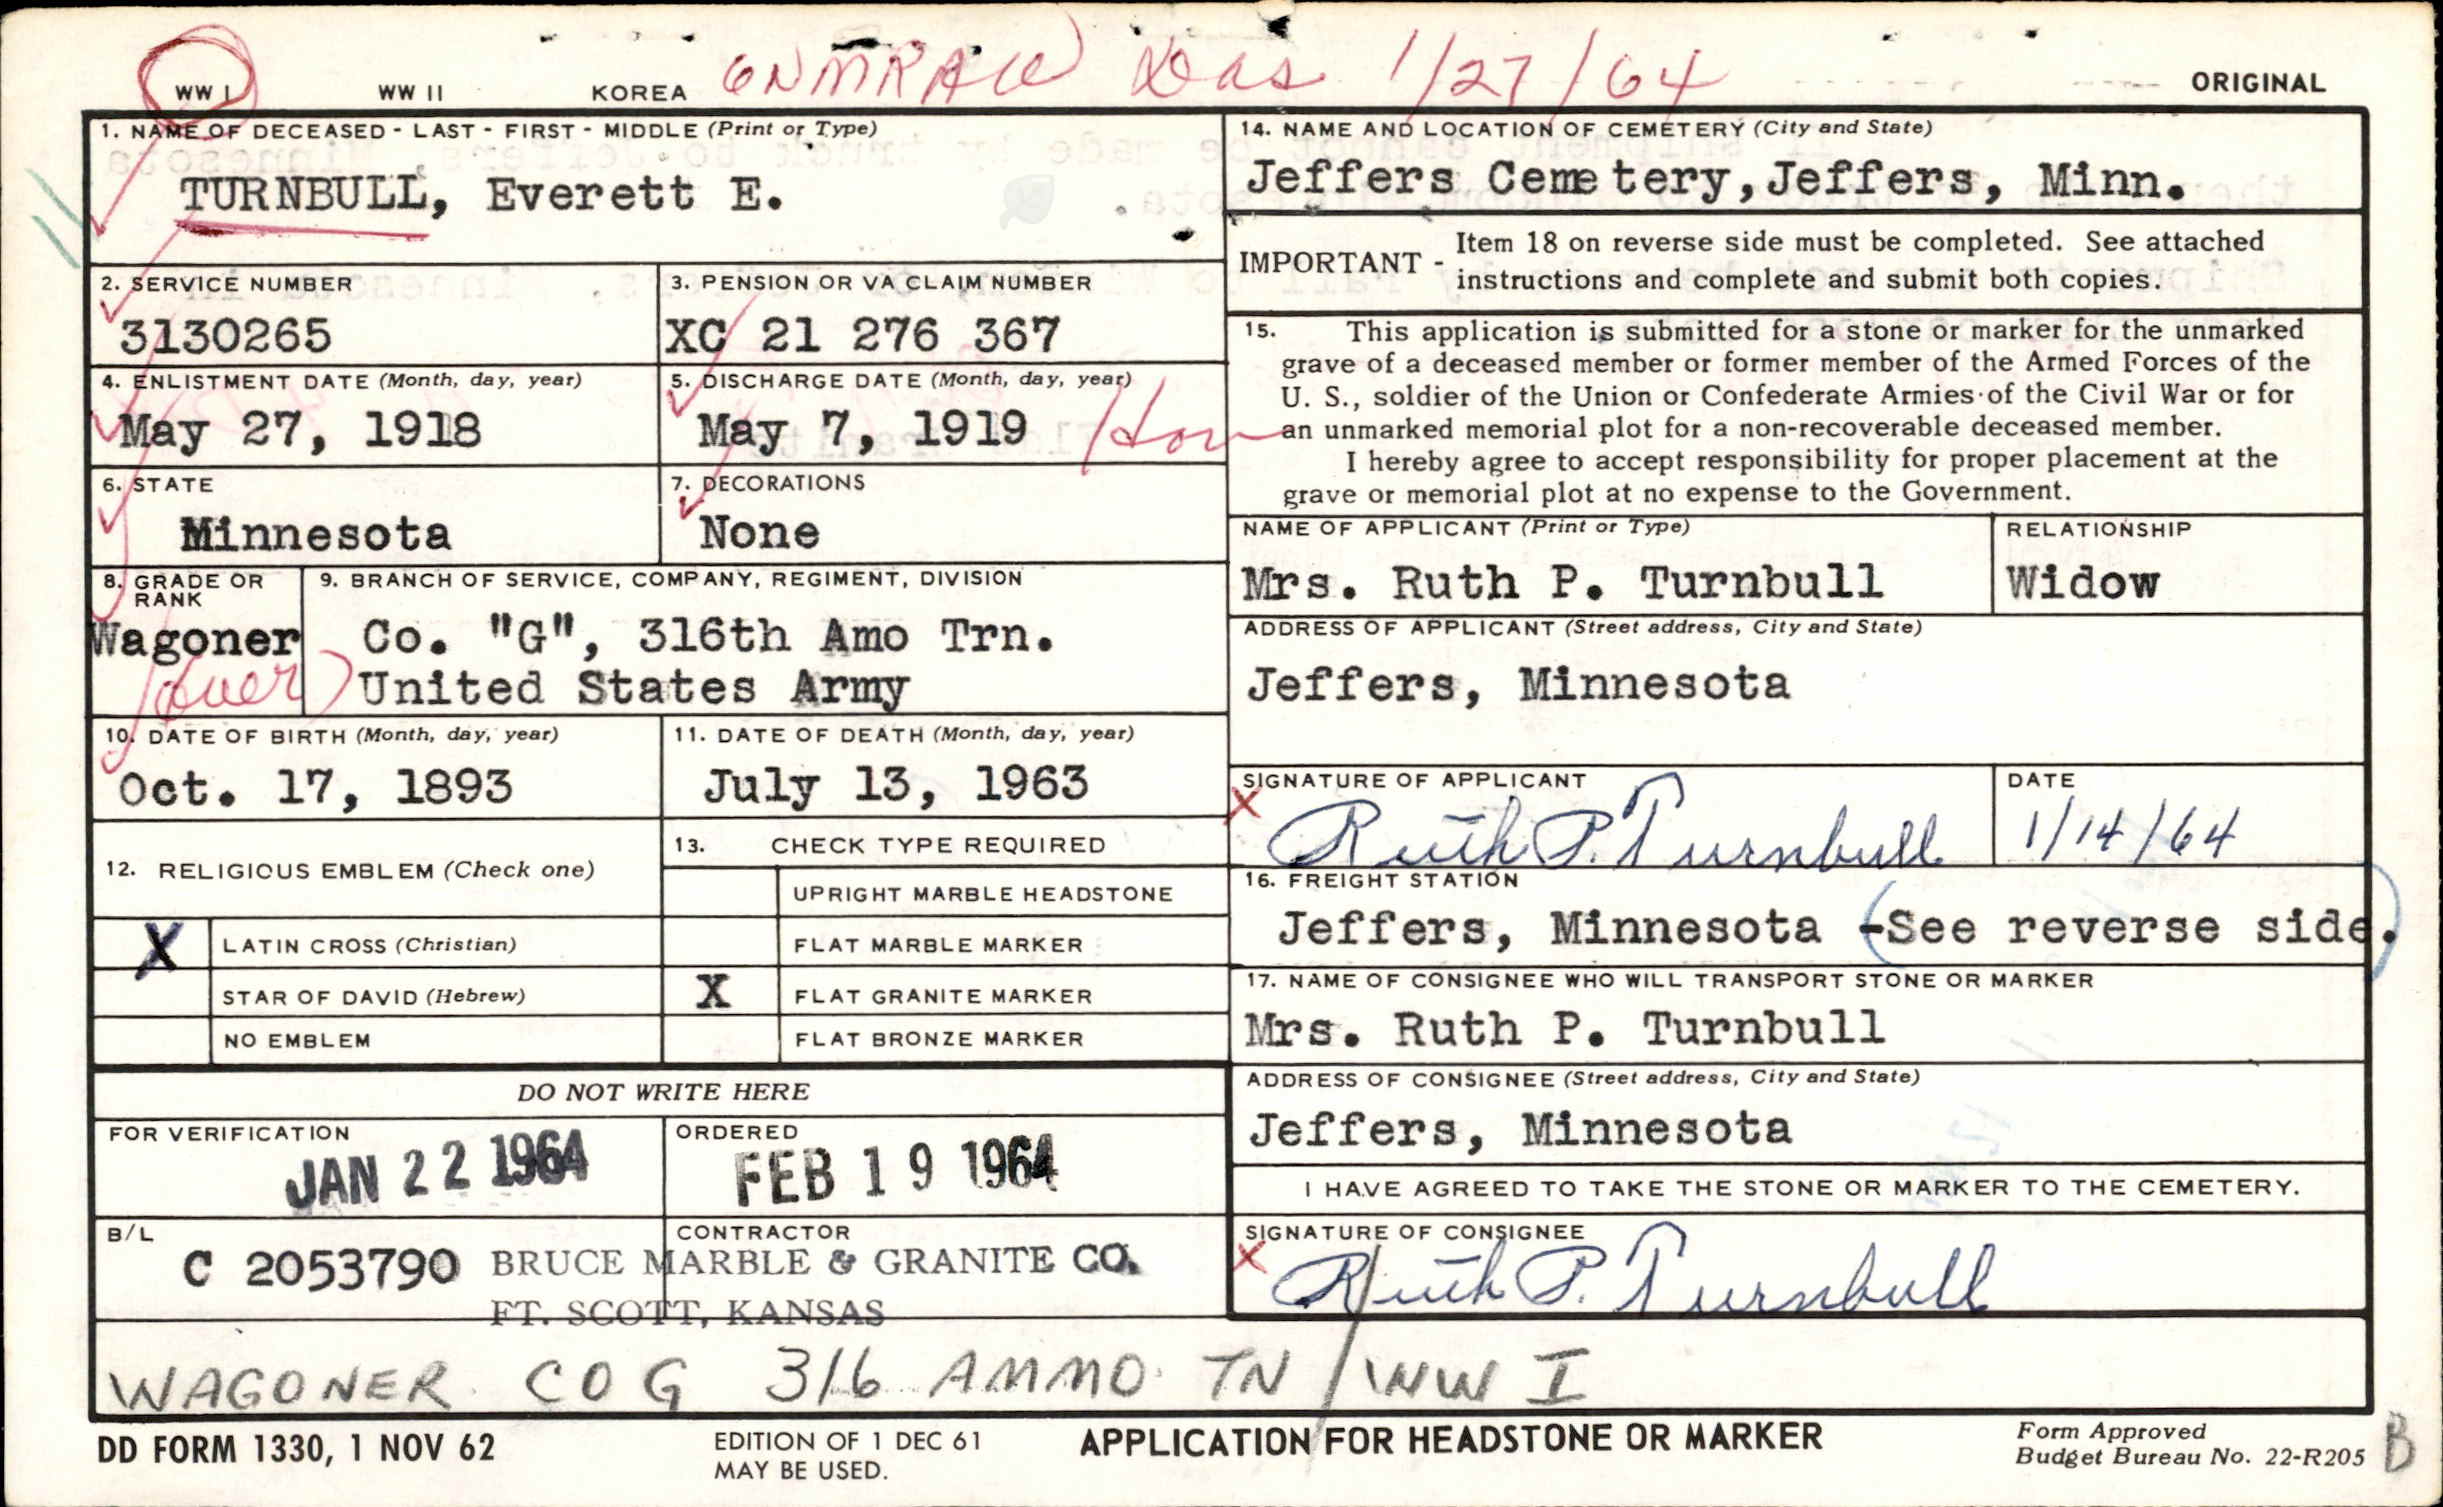 WW I WW II KOREA 1/27/64 ORIGINAL
1. NAME OF DECEASED - LAST - FIRST - MIDDLE (Print or Type)
TURNBULL, Everett E.
2. SERVICE NUMBER
3130265
3. PENSION OR VA CLAIM NUMBER
XC 21 276 367
4. ENLISTMENT DATE (Month, day, year)
May 27, 1918
5. DISCHARGE DATE (Month, day, year)
May 7, 1919 Hon
6. STATE
Minnesota
7. DECORATIONS
None
8. GRADE OR
RANK
Wagoner
(over)
9. BRANCH OF SERVICE, COMPANY, REGIMENT, DIVISION
Co. "G", 316th Amo Trn.
United States Army
10. DATE OF BIRTH (Month, day, year)
Oct. 17, 1893
11. DATE OF DEATH (Month, day, year)
July 13, 1963
12. RELIGIOUS EMBLEM (Check one)
X LATIN CROSS (Christian)
STAR OF DAVID (Hebrew)
NO EMBLEM
13. CHECK TYPE REQUIRED
UPRIGHT MARBLE HEADSTONE
FLAT MARBLE MARKER
X FLAT GRANITE MARKER
FLAT BRONZE MARKER
DO NOT WRITE HERE
FOR VERIFICATION
JAN 22 1964
ORDERED
FEB 19 1964
B/L
C 2053790
CONTRACTOR
BRUCE MARBLE & GRANITE CO.
FT. SCOTT, KANSAS
14. NAME AND LOCATION OF CEMETERY (City and State)
Jeffers Cemetery, Jeffers, Minn.
IMPORTANT - Item 18 on reverse side must be completed. See attached
instructions and complete and submit both copies.
15. This application is submitted for a stone or marker for the unmarked
grave of a deceased member or former member of the Armed Forces of the
U. S., soldier of the Union or Confederate Armies of the Civil War or for
an unmarked memorial plot for a non-recoverable deceased member.
I hereby agree to accept responsibility for proper placement at the
grave or memorial plot at no expense to the Government.
NAME OF APPLICANT (Print or Type)
Mrs. Ruth P. Turnbull
RELATIONSHIP
Widow
ADDRESS OF APPLICANT (Street address, City and State)
Jeffers, Minnesota
SIGNATURE OF APPLICANT
X Ruth P. Turnbull
DATE
1/14/64
16. FREIGHT STATION
Jeffers, Minnesota (-See reverse side.)
17. NAME OF CONSIGNEE WHO WILL TRANSPORT STONE OR MARKER
Mrs. Ruth P. Turnbull
ADDRESS OF CONSIGNEE (Street address, City and State)
Jeffers, Minnesota
I HAVE AGREED TO TAKE THE STONE OR MARKER TO THE CEMETERY.
SIGNATURE OF CONSIGNEE
X Ruth P. Turnbull
WAGONER CO G 316 AMMO TN / WW I
DD FORM 1330, 1 NOV 62
EDITION OF 1 DEC 61
MAY BE USED.
APPLICATION FOR HEADSTONE OR MARKER
Form Approved
Budget Bureau No. 22-R205
B